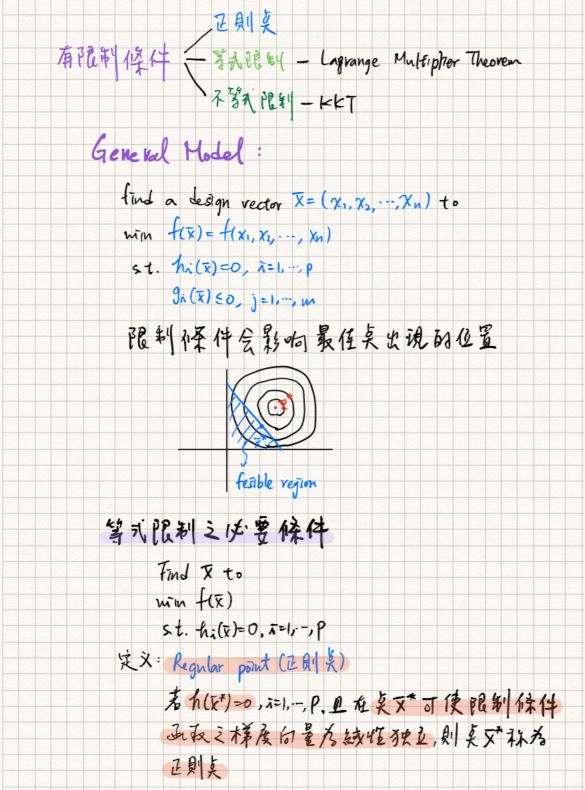 正則奌
有限制條件
等式限制 - Lagrange Multiplier Theorem
不等式限制 - KKT
General Model :
find a design vector x̄ = (x₁, x₂, ⋯, xₙ) to
min f(x̄) = f(x₁, x₂, ⋯, xₙ)
s.t. hᵢ(x̄)=0, i=1,⋯,p
gᵢ(x̄)≤0, j=1,⋯,m
限制條件会影响最佳奌出現的位置
x̄*
fesible region
等式限制之必要條件
Find x̄ to
min f(x̄)
s.t. hᵢ(x̄)=0, i=1,⋯,p
定义: Regular point (正則奌)
若 h(x̄*)=0, i=1,⋯,p, 且在奌 x̄* 可使限制條件
函数之梯度向量為線性独立, 則奌 x̄* 称為
正則奌